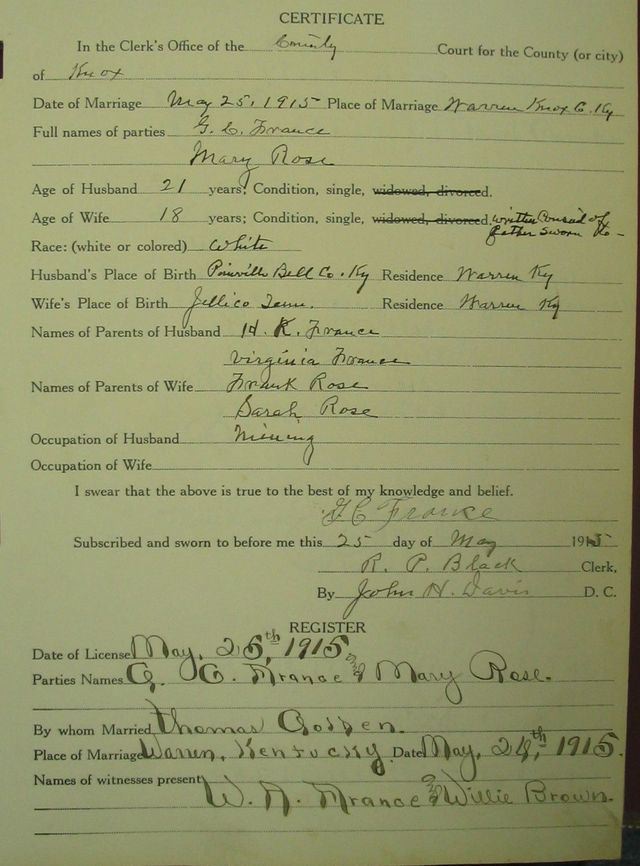 CERTIFICATE
In the Clerk's Office of the County Court for the County (or city)
of Knox
Date of Marriage May 25, 1915 Place of Marriage Warren Knox Co. Ky
Full names of parties G. C. France
Mary Rose
Age of Husband 21 years; Condition, single, widowed, divorced.
Age of Wife 18 years; Condition, single, widowed, divorced, written Consent of
father sworn to -
Race: (white or colored) White
Husband's Place of Birth Pineville Bell Co. Ky Residence Warren Ky
Wife's Place of Birth Jellico Tenn. Residence Warren Ky
Names of Parents of Husband H. K. France
Virginia France
Names of Parents of Wife Frank Rose
Sarah Rose
Occupation of Husband Mining
Occupation of Wife
I swear that the above is true to the best of my knowledge and belief.
G C France
Subscribed and sworn to before me this 25 day of May 1915
R. P. Black Clerk,
By John H. Davis D. C.
REGISTER
Date of License May, 25th, 1915.
Parties Names G. C. France & Mary Rose.
By whom Married Thomas Golden.
Place of Marriage Warren, Kentucky. Date May, th, 1915.
Names of witnesses present W. A. France & Willie Brown.